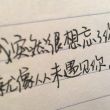 我突然很想忘了你
就像从未遇见你